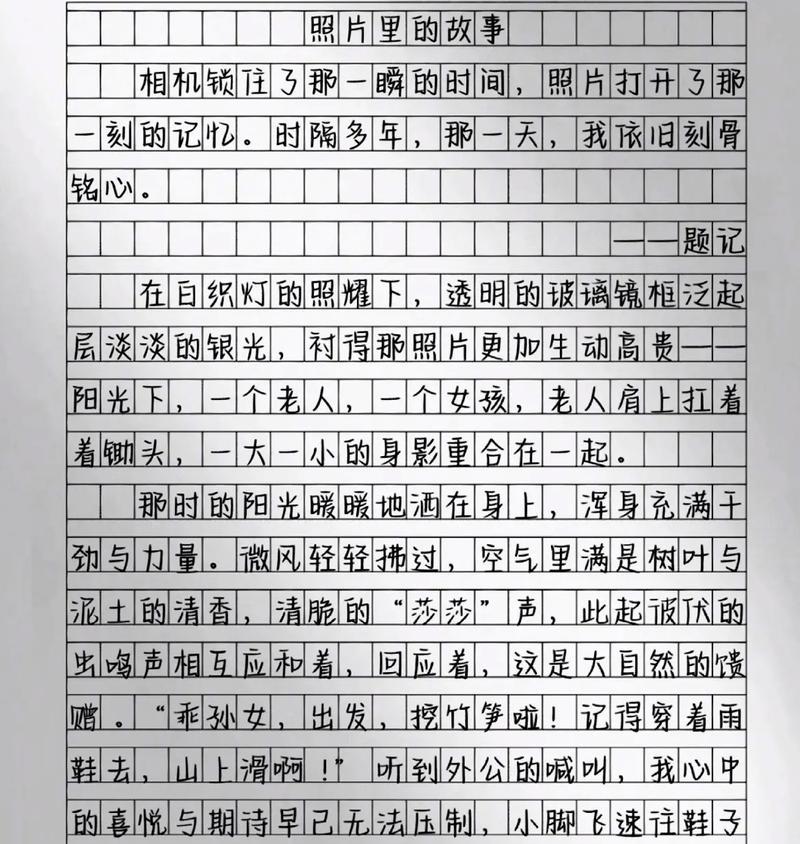 照片里的故事
相机锁住了那一瞬的时间，照片打开了那
一刻的记忆。时隔多年，那一天，我依旧刻骨
铭心。
——题记
在白织灯的照耀下，透明的玻璃镜框泛起
层淡淡的银光，衬得那照片更加生动高贵——
阳光下，一个老人，一个女孩，老人肩上扛着
着锄头，一大一小的身影重合在一起。
那时的阳光暖暖地洒在身上，浑身充满干
劲与力量。微风轻轻拂过，空气里满是树叶与
泥土的清香，清脆的“莎莎”声，此起彼伏的
虫鸣声相互应和着，回应着，这是大自然的馈
赠。“乖孙女，出发，挖竹笋啦！记得穿着雨
鞋去，山上滑啊！”听到外公的喊叫，我心中
的喜悦与期待早已无法压制，小脚飞速往鞋子